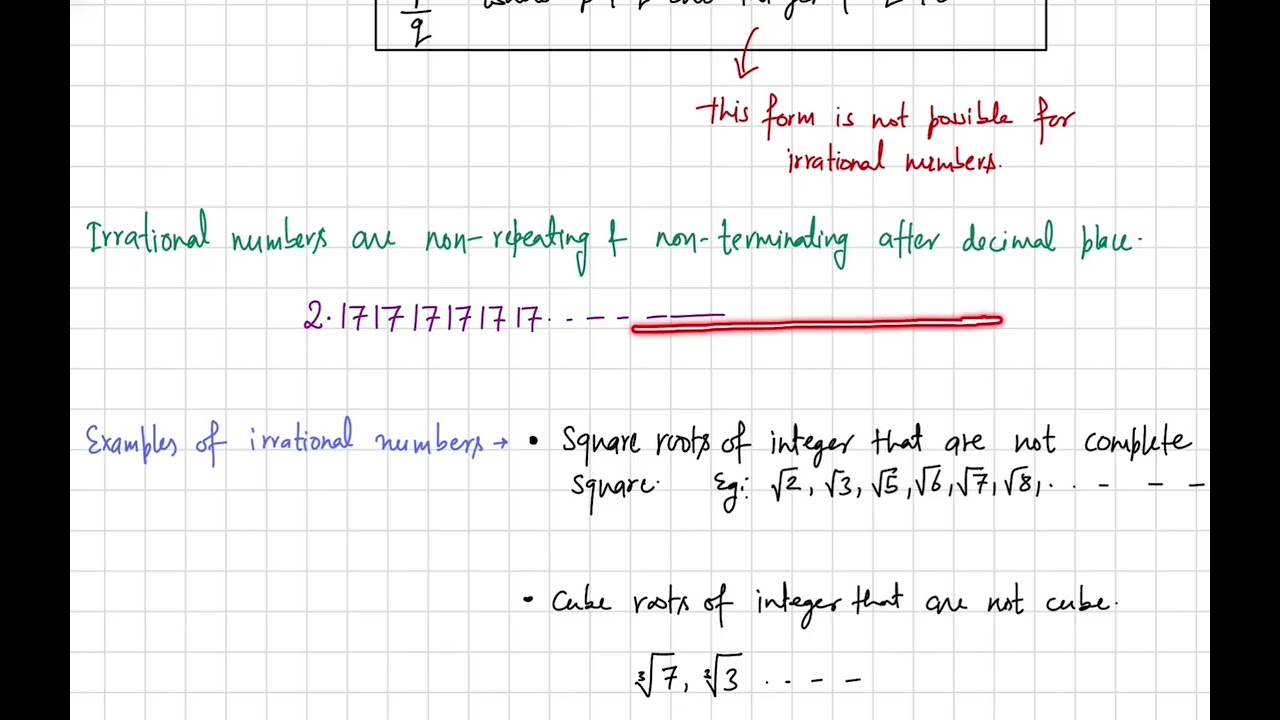 q
This form is not possible for
irrational numbers.
Irrational numbers are non-repeating & non-terminating after decimal place.
2.171717171717..-----
Examples of irrational numbers → • Square roots of integer that are not complete
square. Eg: √2, √3, √5, √6, √7, √8, . . - - -
• Cube roots of integer that are not cube.
∛7, ∛3 . . - - -